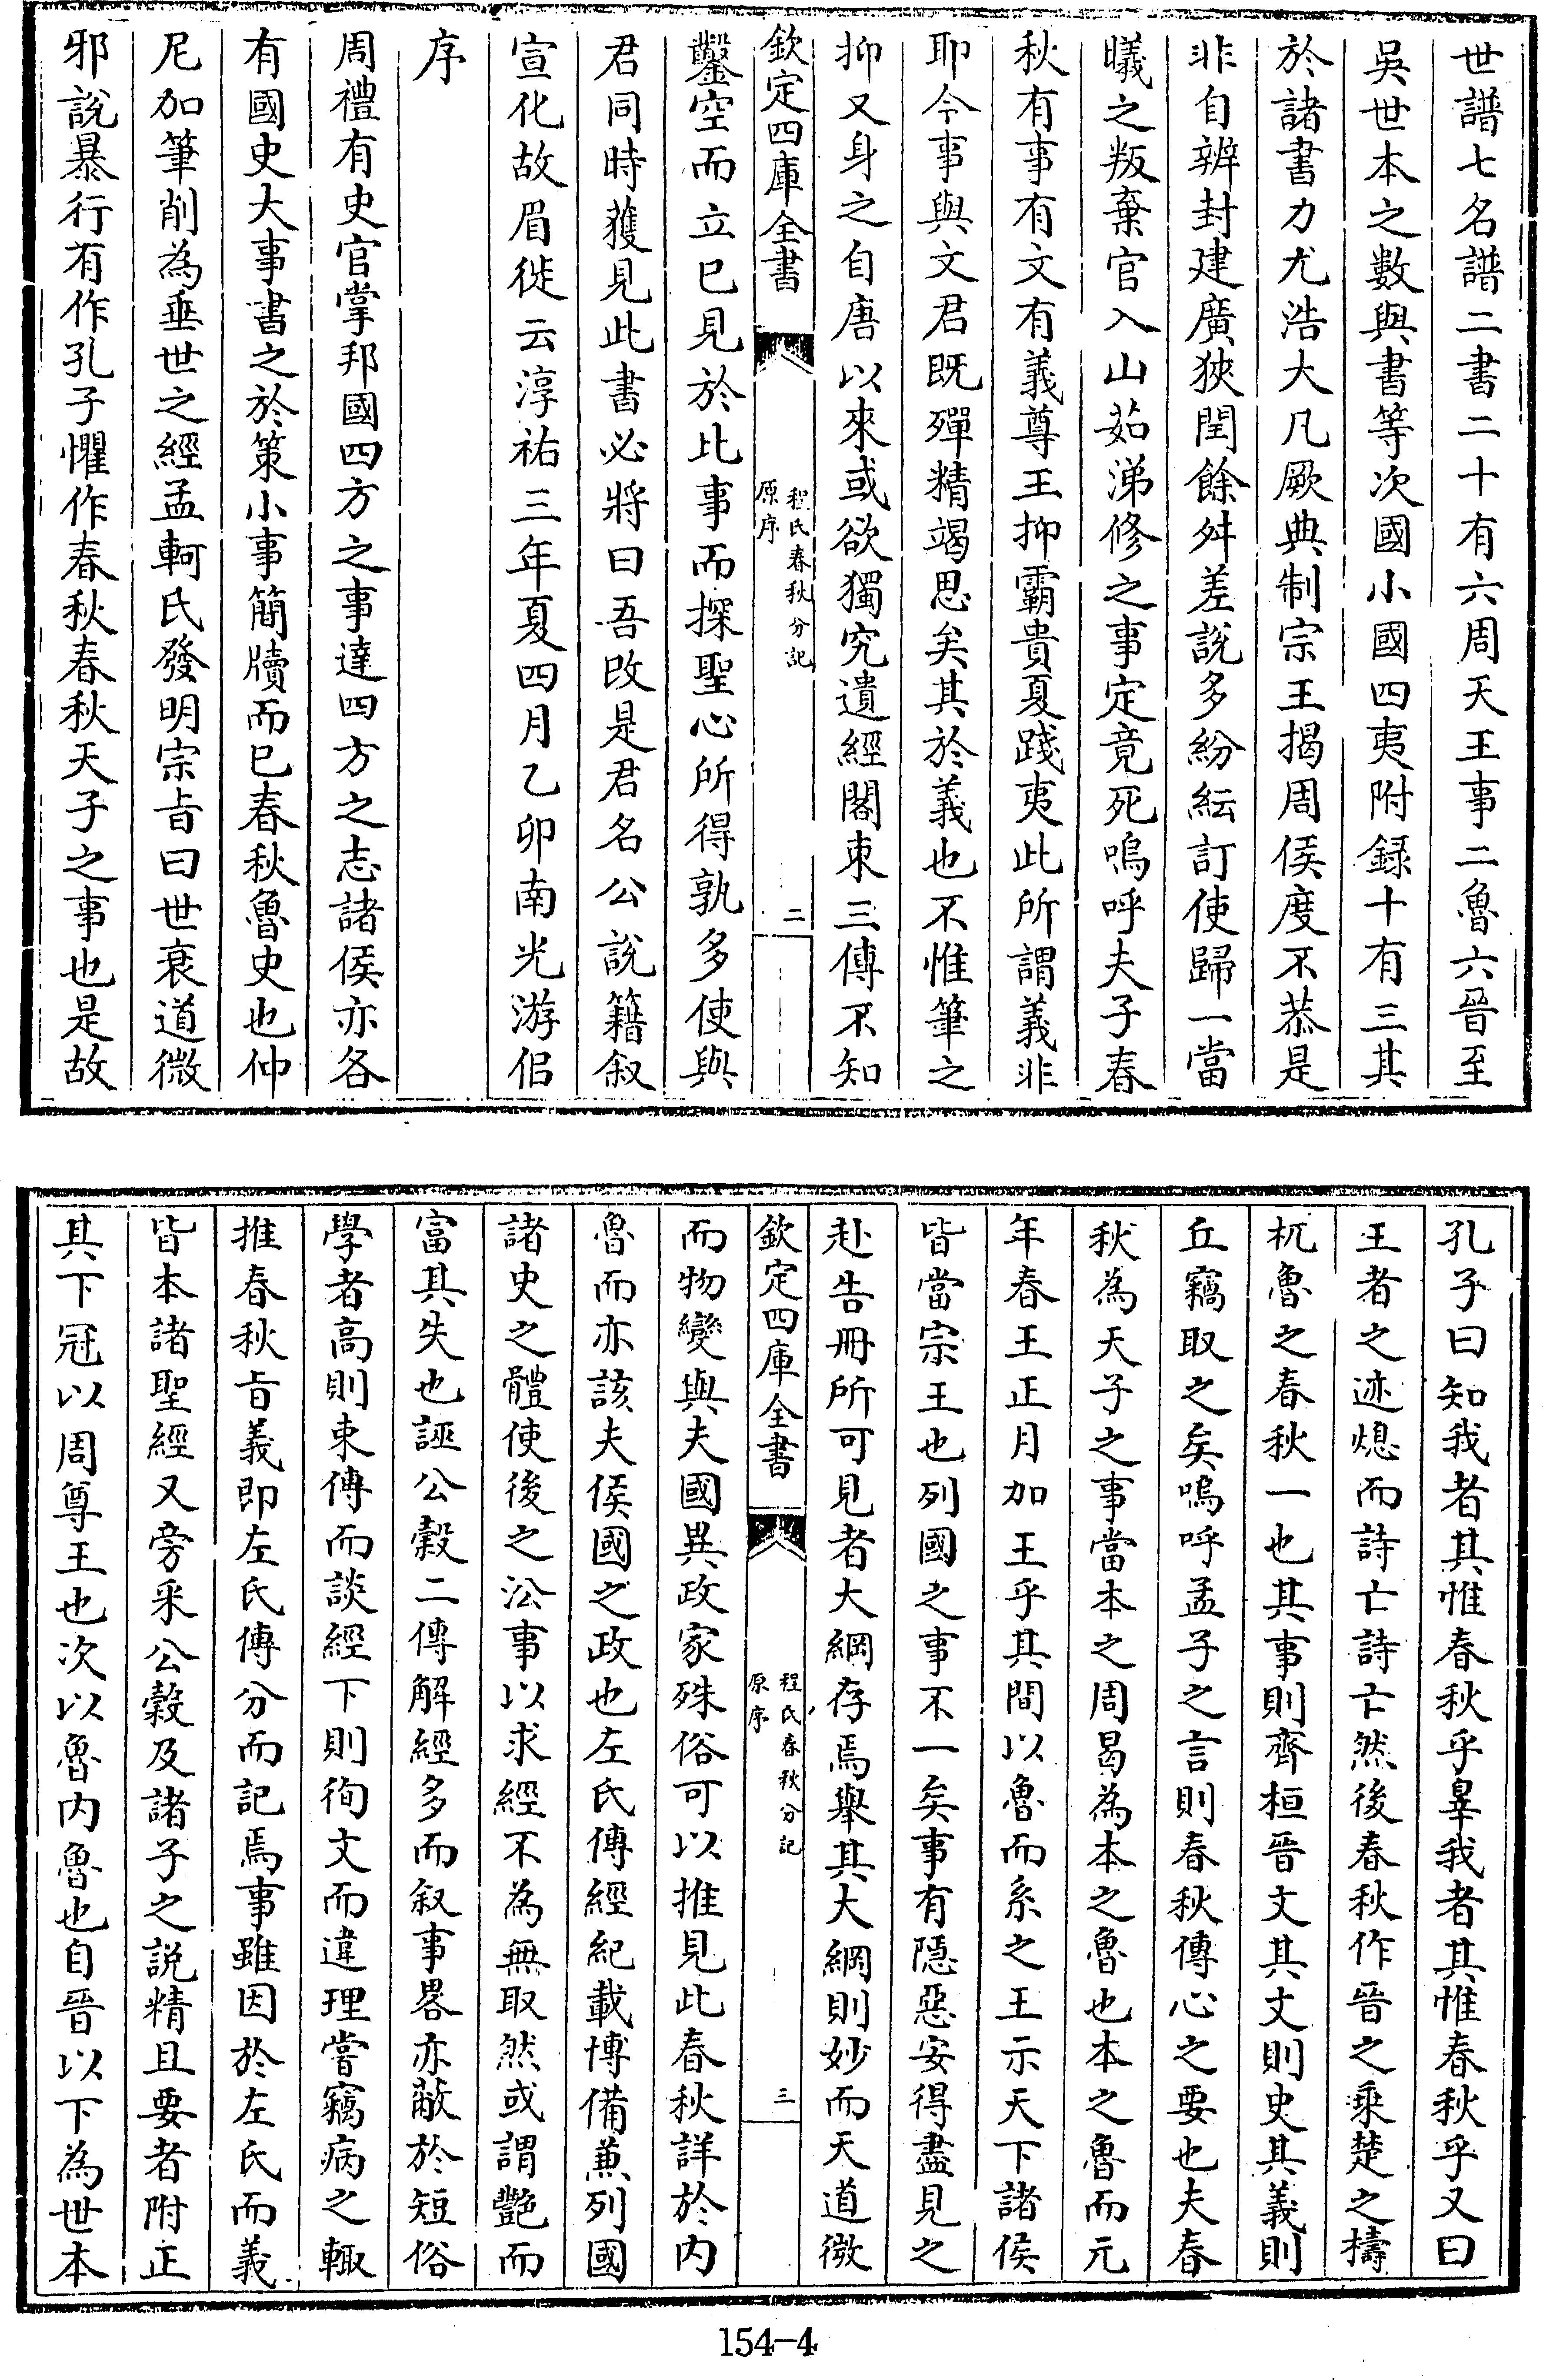 世譜七名譜二書二十有六周天王事二魯六晉至
吳世本之數與書等次國小國四夷附錄十有三其
於諸書力尤浩大凡厥典制宗王揭周侯度不恭是
非自辨封建廣狹閏餘舛差說多紛紜訂使歸一當
曦之叛棄官入山茹涕修之事定竟死嗚呼夫子春
秋有事有文有義尊王抑霸貴夏踐夷此所謂義非
耶今事與文君既殫精竭思矣其於義也不惟筆之
抑又身之自唐以來或欲獨究遺經閣束三傳不知
欽定四庫全書
程氏春秋分記
原序
二
鑿空而立已見於比事而探聖心所得孰多使與
君同時獲見此書必將曰吾改是君名公說籍叙
宣化故眉徙云淳祐三年夏四月乙卯南光游侣
序
周禮有史官掌邦國四方之事達四方之志諸侯亦各
有國史大事書之於策小事簡牘而已春秋魯史也仲
尼加筆削為垂世之經孟軻氏發明宗旨曰世衰道微
邪說暴行有作孔子懼作春秋春秋天子之事也是故
孔子曰知我者其惟春秋乎辠我者其惟春秋乎又曰
王者之迹熄而詩亡詩亡然後春秋作晉之乘楚之檮
杌魯之春秋一也其事則齊桓晉文其文則史其義則
丘竊取之矣嗚呼孟子之言則春秋傳心之要也夫春
秋為天子之事當本之周曷為本之魯也本之魯而元
年春王正月加王乎其間以魯而系之王示天下諸侯
皆當宗王也列國之事不一矣事有隱惡安得盡見之
赴告冊所可見者大綱存焉舉其大綱則妙而天道微
欽定四庫全書
程氏春秋分記
原序
三
而物變與夫國異政家殊俗可以推見此春秋詳於内
魯而亦該夫侯國之政也左氏傳經紀載博備兼列國
諸史之體使後之㳂事以求經不為無取然或謂艷而
富其失也誣公穀二傳解經多而叙事畧亦蔽於短俗
學者高則束傳而談經下則徇文而違理嘗竊病之輒
推春秋旨義即左氏傳分而記焉事雖因於左氏而義
皆本諸聖經又旁采公穀及諸子之說精且要者附正
其下冠以周尊王也次以魯内魯也自晉以下為世本
154-4